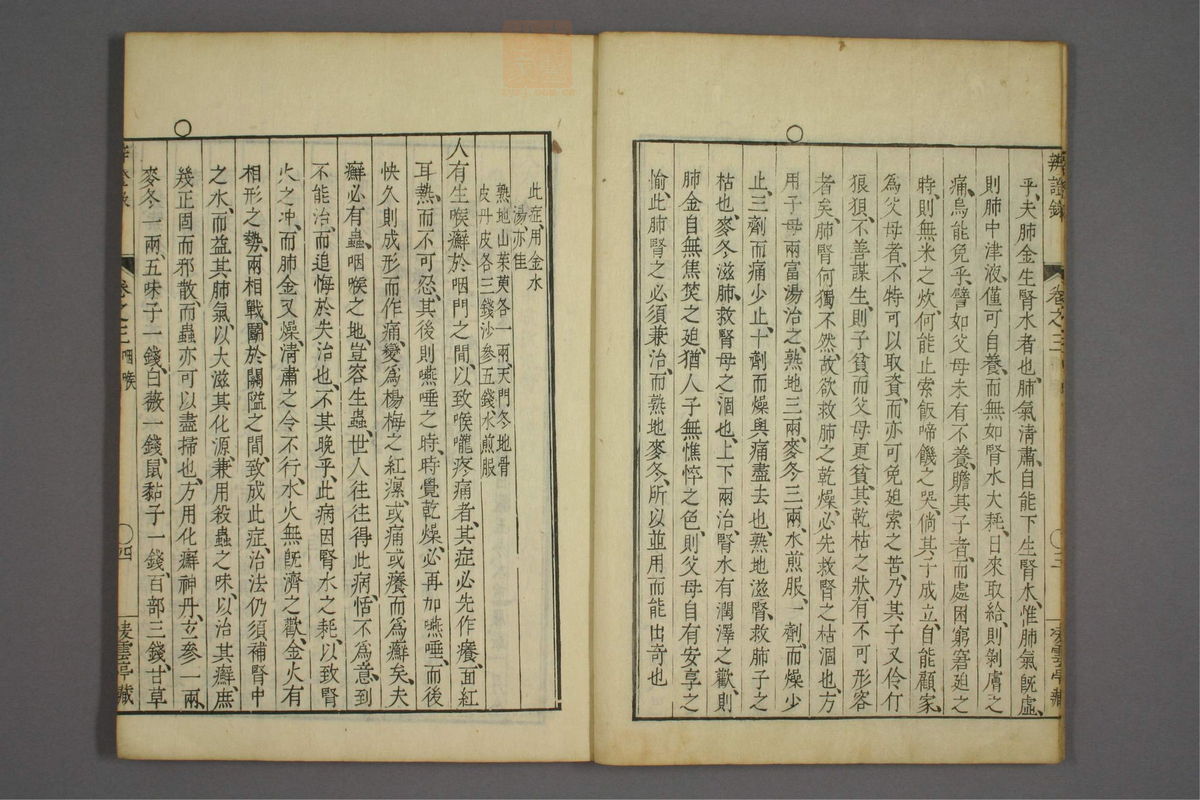 辨證錄 卷之三
乎、夫肺金生腎水者也、肺氣清肅自能下生腎水、惟肺氣旣虛、
則肺中津液、僅可自養、而無如腎水大耗、日來取給、則剝膚之
痛、烏能免乎、譬如父母未有不養贍其子者、而處困窮窘廹之
時、則無米之炊、何能止索飯啼饑之哭、倘其子成立、自能顧家、
爲父母者、不特可以取資、而亦可免廹索之苦、乃其子又伶仃
狼狽、不善謀生、則子貧而父母更貧、其乾枯之狀、有不可形容
者矣、肺腎何獨不然、故欲救肺之乾燥、必先救腎之枯涸也、方
用子母兩富湯治之、熟地三兩、麥冬三兩、水煎服、一劑、而燥少
止、三劑而痛少止、十劑而燥與痛盡去也、熟地滋腎、救肺子之
枯也、麥冬滋肺、救腎母之涸也、上下兩治、腎水有潤澤之歡、則
肺金自無焦焚之廹、猶人子無憔悴之色、則父母自有安享之
愉、此肺腎之必須兼治、而熟地麥冬、所以並用而能出奇也
三
凌雲亭藏
此症用金水
湯亦佳
熟地山茱萸各一兩天門冬地骨
皮丹皮各三錢沙參五錢水煎服
人有生喉癬於咽門之間、以致喉嚨疼痛者、其症必先作癢、面紅
耳熱、而不可忍、其後則嚥唾之時、時覺乾燥、必再加嚥唾、而後
快、久則成形而作痛、變爲楊梅之紅瘰、或痛或癢而爲癬矣、夫
癬必有蟲、咽喉之地、豈容生蟲、世人往往得此病、恬不爲意、到
不能治、而追悔於失治也、不其晚乎、此病因腎水之耗、以致腎
火之冲、而肺金又燥、清肅之令不行、水火無旣濟之歡、金火有
相形之勢、兩相戰鬭於關隘之間、致成此症、治法仍須補腎中
之水、而益其肺氣、以大滋其化源、兼用殺蟲之味、以治其癬、庶
幾正固而邪散、而蟲亦可以盡掃也、方用化癬神丹、玄參一兩、
麥冬一兩、五味子一錢、白薇一錢、鼠黏子一錢、百部三錢、甘草
卷之三 咽喉
四
凌雲亭藏